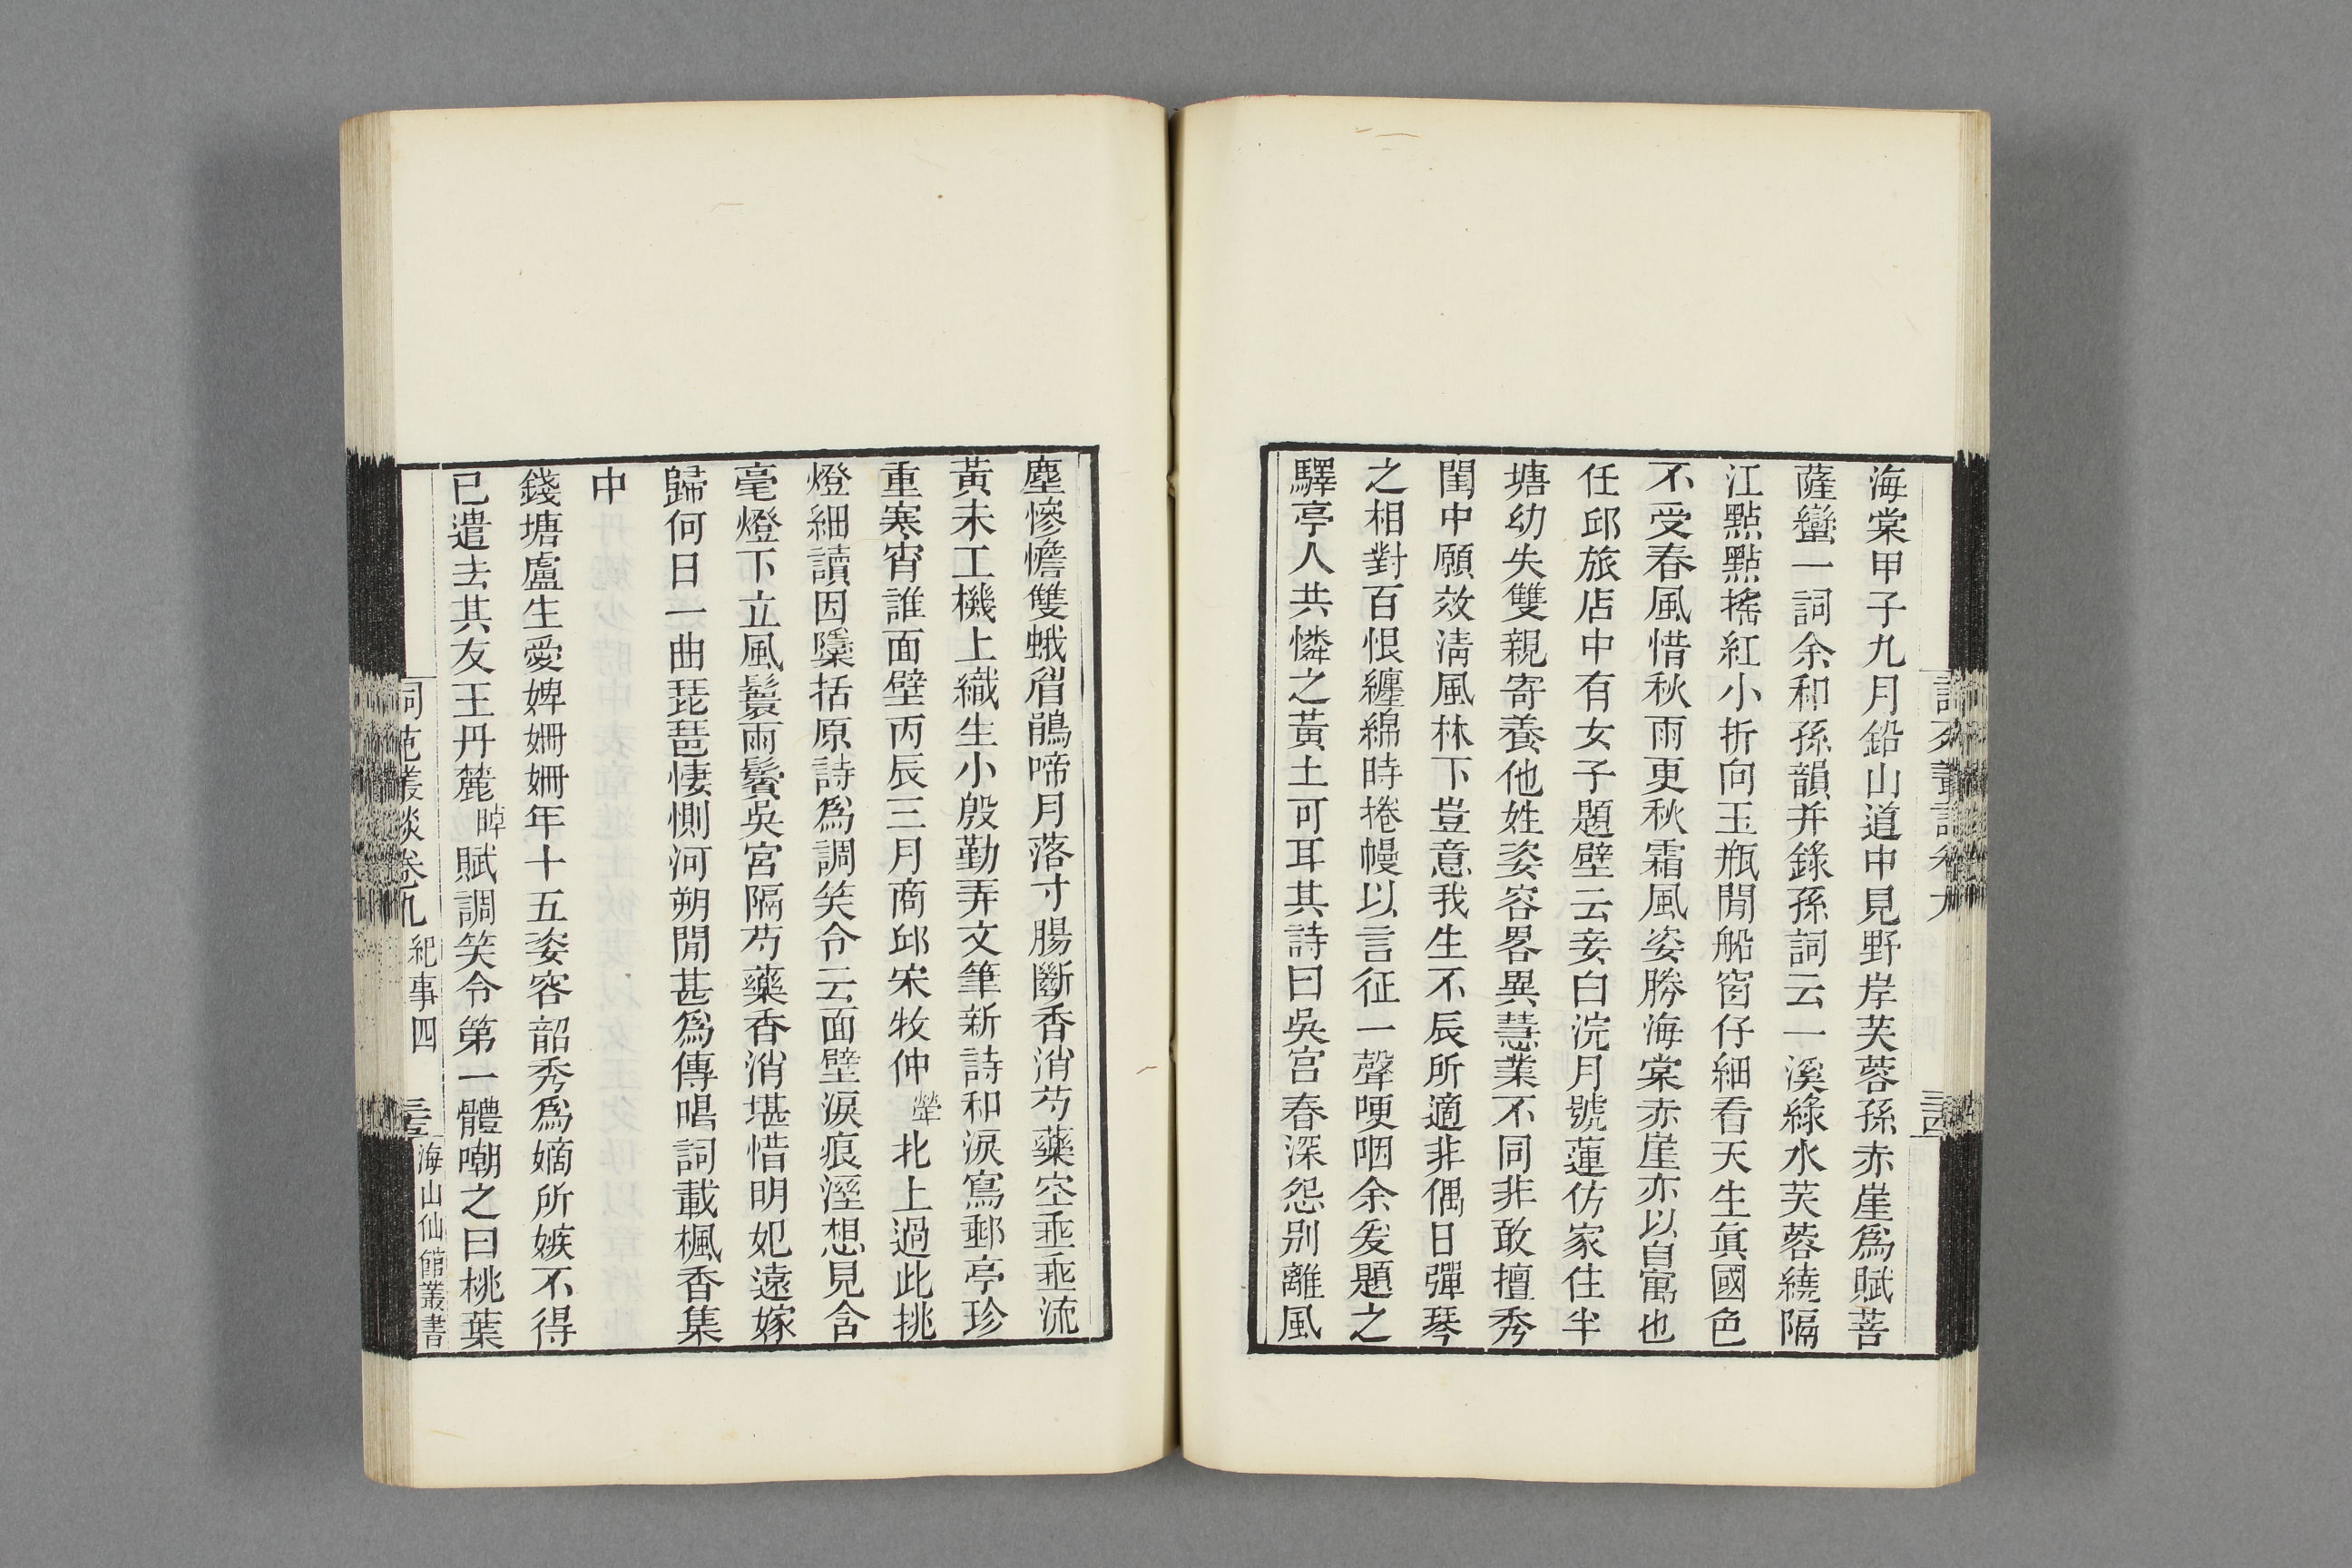 海棠甲子九月鉛山道中見野岸芙蓉孫赤崖爲賦菩
薩蠻一詞余和孫韻并錄孫詞云一溪綠水芙蓉繞隔
江點點搖紅小折向玉瓶閒船窗仔細看天生眞國色
不受春風惜秋雨更秋霜風姿勝海棠赤崖亦以自寓也
任邱旅店中有女子題壁云妾白浣月號蓮仿家住半
塘幼失雙親寄養他姓姿容畧異慧業不同非敢擅秀
閨中願效淸風林下豈意我生不辰所適非偶日彈琴
之相對百恨纏綿時捲幔以言征一聲哽咽余爰題之
驛亭人共憐之黃土可耳其詩曰吳宮春深怨别離風
塵慘憺雙蛾眉鵑啼月落寸腸斷香消芍藥空垂垂流
黃未工機上織生小殷勤弄文筆新詩和淚寫郵亭珍
重寒宵誰面壁丙辰三月商邱宋牧仲犖北上過此挑
燈細讀因檃括原詩爲調笑令云面壁淚痕溼想見含
毫燈下立風鬟雨鬢吳宮隔芍藥香消堪惜明妃遠嫁
歸何日一曲琵琶悽惻河朔閒甚爲傳唱詞載楓香集
中
錢塘盧生愛婢姍姍年十五姿容韶秀爲嫡所嫉不得
已遣去其友王丹麓晫賦調笑令第一體嘲之曰桃葉
詞苑叢談卷九 紀事四 三五 海山仙館叢書